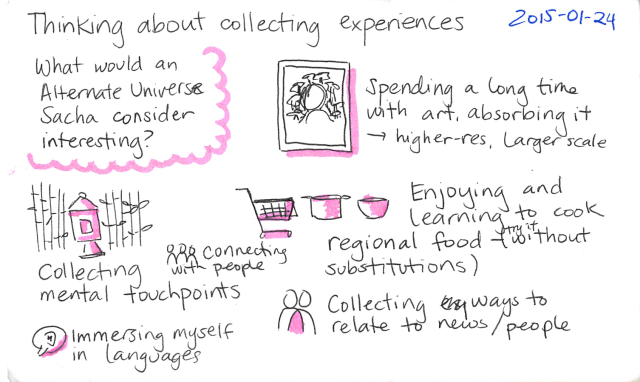 Thinking about collecting experiences
2015-01-24
What would an
Alternate Universe
Sacha consider
interesting?
Spending a long time
with art, absorbing it
→ higher-res, larger scale
Collecting
mental touchpoints
Connecting
with people
Enjoying and
learning to cook
regional food (try it without
substitutions)
Immersing myself
in languages
Collecting ways to
relate to news/people